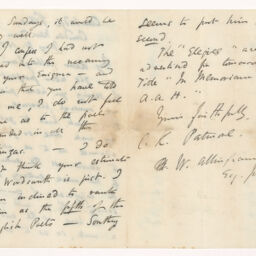 Sundays, it would be
well
I confess I had not
into the meaning
your Enigma - and
that you have told
me, I do not feel
as to the poet
in all the
- I do
think your estimate
Wordsworth is just. I
am inclined to rank
him as the fifth of the
English Poets - Southey
seems to put him
second.
The "Elegies" are
advertised for tomorrow
Title "In Memoriam
A.A.H."
Yours faithfully,
C. K. Patmore.
W. Allingham
Esq.